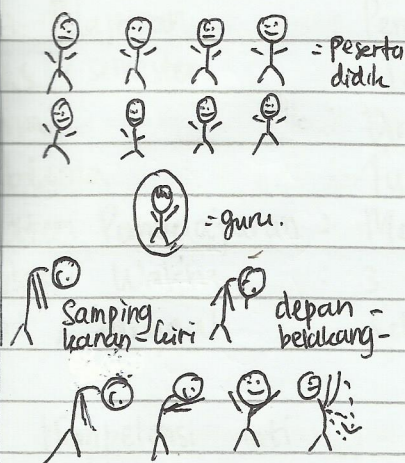 = peserta
didik
= guru.
Samping
kanan - kiri
depan -
belakang -